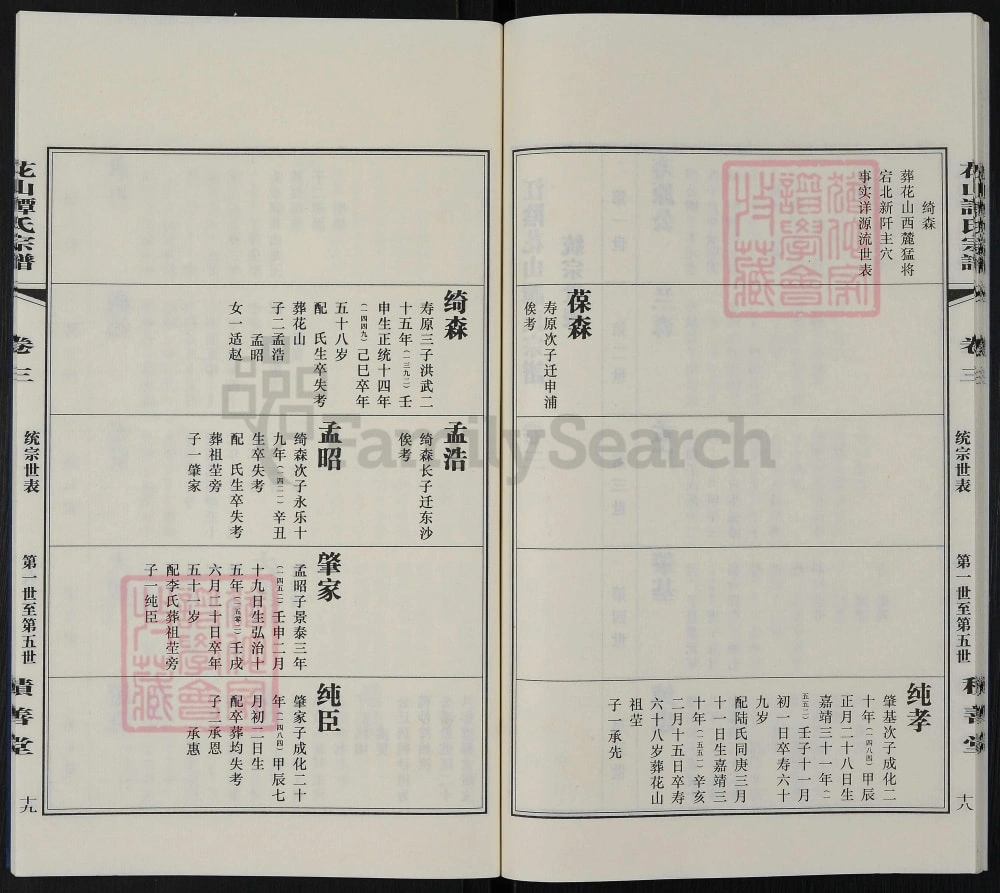 花山谭氏宗谱
卷三
统宗世表
第一世至第五世
积善堂
十八
绮森
葬花山西麓猛将
宕北新阡主穴
事实详源流世表
葆森
寿原次子迁申浦
俟考
纯孝
肇基次子成化二
十年(一四八四)甲辰
正月二十八日生
嘉靖三十一年(一
五五二)壬子十一月
初一日卒寿六十
九岁
配陆氏同庚三月
十一日生嘉靖三
十年(一五五一)辛亥
二月十五日卒寿
六十八岁葬花山
祖茔
子一承先
绮森
寿原三子洪武二
十五年(一三九二)壬
申生正统十四年
(一四四九)己巳卒年
五十八岁
配 氏生卒失考
葬花山
子二孟浩
孟昭
女一适赵
孟浩
绮森长子迁东沙
俟考
孟昭
绮森次子永乐十
九年(一四二一)辛丑
生卒失考
配 氏生卒失考
葬祖茔旁
子一肇家
肇家
孟昭子景泰三年
(一四五二)壬申二月
十九日生弘治十
五年(一五零二)壬戌
六月二十日卒年
五十一岁
配李氏葬祖茔旁
子一纯臣
纯臣
肇家子成化二十
年(一四八四)甲辰七
月初二日生
配卒葬均失考
子二承恩
承惠
花山谭氏宗谱
卷三
统宗世表
第一世至第五世
积善堂
十九
FamilySearch